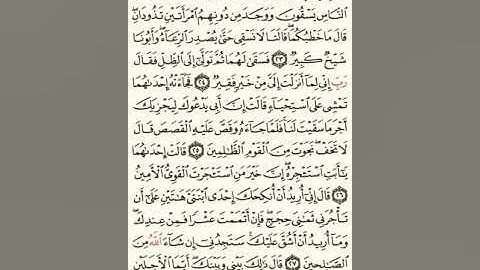 ٱلنَّاسِ يَسْقُونَ وَوَجَدَ مِن دُونِهِمُ ٱمْرَأَتَيْنِ تَذُودَانِۖ
قَالَ مَا خَطْبُكُمَاۖ قَالَتَا لَا نَسْقِى حَتَّىٰ يُصْدِرَ ٱلرِّعَآءُۖ وَأَبُونَا
شَيْخٌ كَبِيرٌ ٢٣ فَسَقَىٰ لَهُمَا ثُمَّ تَوَلَّىٰٓ إِلَى ٱلظِّلِّ فَقَالَ
رَبِّ إِنِّى لِمَآ أَنزَلْتَ إِلَىَّ مِنْ خَيْرٍ فَقِيرٌ ٢٤ فَجَآءَتْهُ إِحْدَىٰهُمَا
تَمْشِى عَلَى ٱسْتِحْيَآءٍ قَالَتْ إِنَّ أَبِى يَدْعُوكَ لِيَجْزِيَكَ
أَجْرَ مَا سَقَيْتَ لَنَاۚ فَلَمَّا جَآءَهُۥ وَقَصَّ عَلَيْهِ ٱلْقَصَصَ قَالَ
لَا تَخَفْۖ نَجَوْتَ مِنَ ٱلْقَوْمِ ٱلظَّٰلِمِينَ ٢٥ قَالَتْ إِحْدَىٰهُمَا
يَٰٓأَبَتِ ٱسْتَـْٔجِرْهُۖ إِنَّ خَيْرَ مَنِ ٱسْتَـْٔجَرْتَ ٱلْقَوِىُّ ٱلْأَمِينُ
٢٦ قَالَ إِنِّىٓ أُرِيدُ أَنْ أُنكِحَكَ إِحْدَى ٱبْنَتَىَّ هَٰتَيْنِ عَلَىٰٓ أَن
تَأْجُرَنِى ثَمَٰنِىَ حِجَجٍۖ فَإِنْ أَتْمَمْتَ عَشْرًا فَمِنْ عِندِكَۖ
وَمَآ أُرِيدُ أَنْ أَشُقَّ عَلَيْكَۚ سَتَجِدُنِىٓ إِن شَآءَ ٱللَّهُ مِنَ
ٱلصَّٰلِحِينَ ٢٧ قَالَ ذَٰلِكَ بَيْنِى وَبَيْنَكَۖ أَيَّمَا ٱلْأَجَلَيْنِ